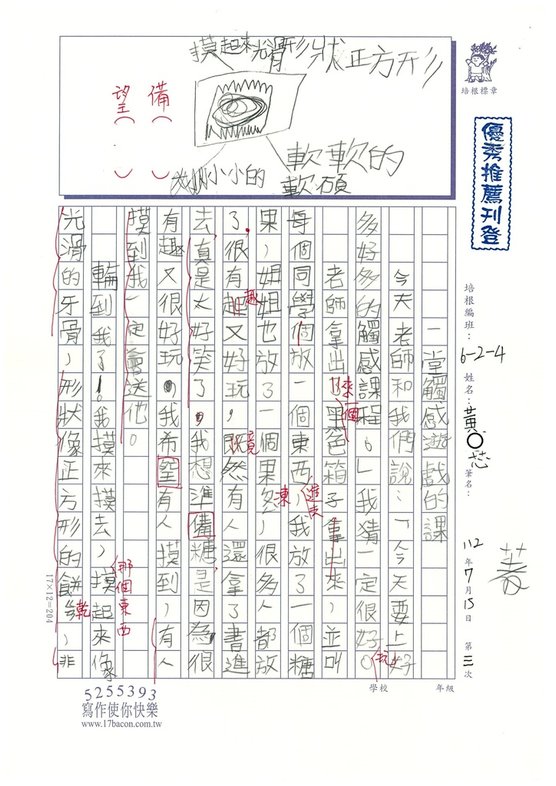 摸起來光滑形狀正方形
軟軟的
軟碩
小小的
備（　）
望（　）
培根標章
優秀推薦刊登
培根編班：6-2-4 姓名：黃○芯 筆名：
112年7月15日 第三次
一堂觸感遊戲的課
今天老師和我們說：「今天要上好
多好多的觸感課程。」我猜一定很好。
玩
老師拿出了黑色箱子拿出來，並叫
來一個
每個同學個放一個東西，我放了一個糖
進去
果，姐姐也放了一個果多，很多人都放
凍
了，很有趣又好玩，既然有人還拿了書進
趣
竟
去，真是太好笑了，我想準備糖是因為很
有趣又很好玩，我希望有人摸到，有人
摸到我一定會送他。
輪到我了！我摸來摸去，摸起來像
那個東西
光滑的牙骨，形狀像正方形的餅乾，非
乾
17×12=204
學校 年級
5255393
寫作使你快樂
www.17bacon.com.tw